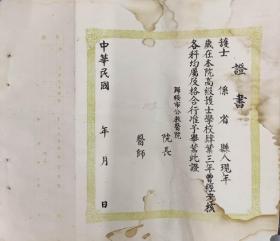 證書
護士 係 省 縣人現年
歲在本院高級護士學校肄業三年曾經考核
各科均屬及格合行准予畢業此證
歸綏市公教醫院
院長
醫師
中華民國 年 月 日